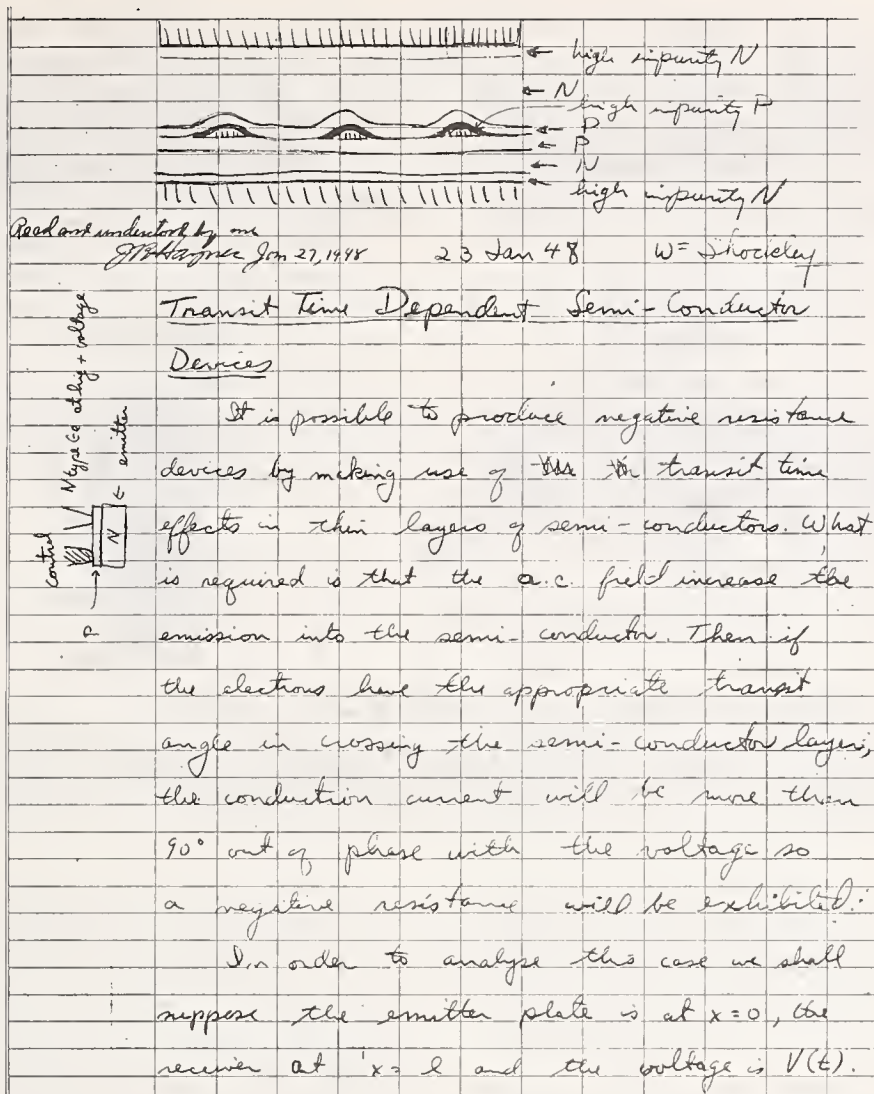 high impurity N
N
high impurity P
P
P
N
high impurity N
Read and understood by me
Jan 27, 1948
23 Jan 48
W Shockley
Transit Time Dependent Semi-Conductor
Devices
It is possible to produce negative resistance
devices by making use of transit time
effects in thin layers of semi-conductors. What
is required is that the a.c. field increase the
emission into the semi-conductor. Then if
the electrons have the appropriate transit
angle in crossing the semi-conductor layer,
the conduction current will be more than
90° out of phase with the voltage so
a negative resistance will be exhibited.
In order to analyse this case we shall
suppose the emitter plate is at x=0, the
receiver at x=l and the voltage is V(t).
Control
N type Ge at hig + voltage
emitter
N
P